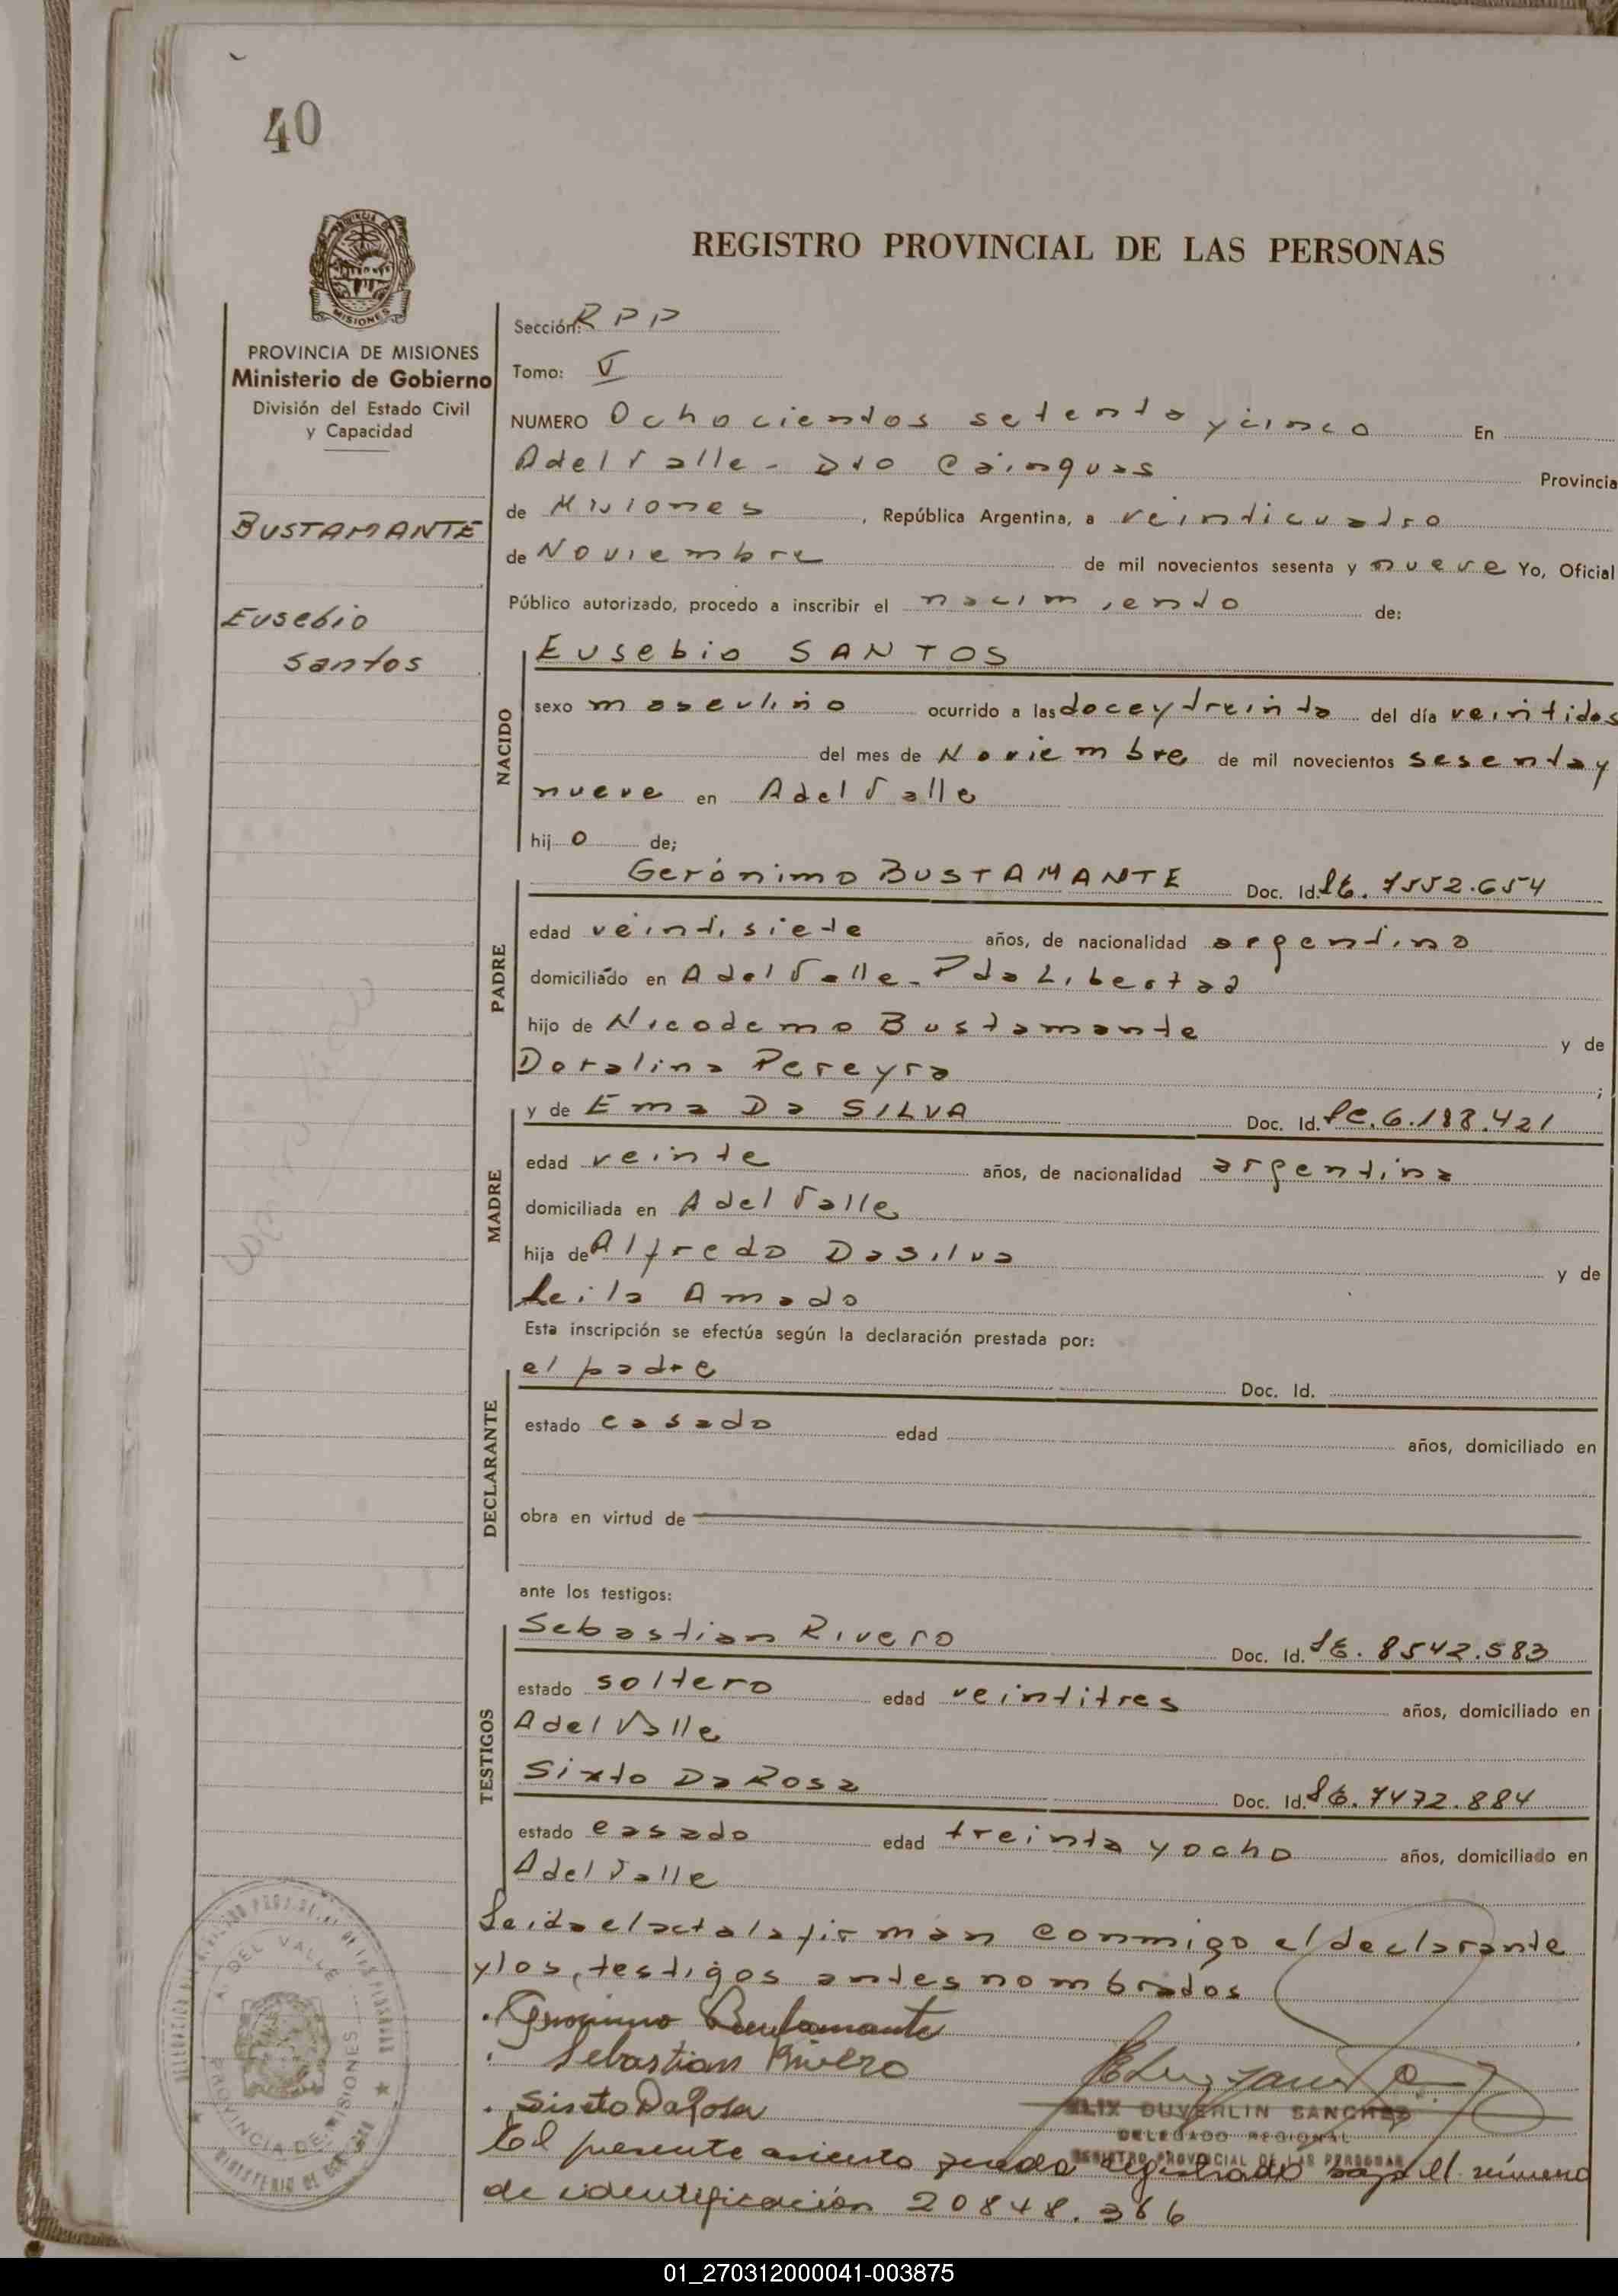 40
REGISTRO PROVINCIAL DE LAS PERSONAS
PROVINCIA DE MISIONES
Ministerio de Gobierno
División del Estado Civil
y Capacidad
BUSTAMANTE
Eusebio
Santos
Sección: RPP
Tomo: V
NUMERO Ochocientos setenta y cinco En
A del Valle - Dto Cainguas Provincia
de Misiones, República Argentina, a veinticuatro
de Noviembre de mil novecientos sesenta y nueve Yo, Oficial
Público autorizado, procedo a inscribir el nacimiento de:
NACIDO
Eusebio SANTOS
sexo masculino ocurrido a las doce y treinta del día veintidos
del mes de Noviembre de mil novecientos sesenta y
nueve en A del Valle
hijo de;
PADRE
Gerónimo BUSTAMANTE Doc. Id. LE. 7552.654
edad veintisiete años, de nacionalidad argentino
domiciliado en A del Valle - Pda Libertad
hijo de Nicodemo Bustamante y de
Doralina Pereyra ;
MADRE
y de Ema Da SILVA Doc. Id. LC. 6.188.421
edad veinte años, de nacionalidad argentina
domiciliada en A del Valle
hija de Alfredo Dasilva y de
Leila Amado
Esta inscripción se efectúa según la declaración prestada por:
DECLARANTE
el padre Doc. Id.
estado casado edad años, domiciliado en
obra en virtud de
ante los testigos:
TESTIGOS
Sebastian Rivero Doc. Id. LE. 8542.583
estado soltero edad veintitres años, domiciliado en
A del Valle
Sixto Da Rosa Doc. Id. LE. 7472.884
estado casado edad treinta y ocho años, domiciliado en
A del Valle
Leida el acta la firman conmigo el declarante
y los testigos antes nombrados
Geronimo Bustamante
Sebastian Rivero
Sisto Da Rosa
ELIX DUVERLIN SANCHEZ
DELEGADO REGIONAL
REGISTRO PROVINCIAL DE LAS PERSONAS
El presente asiento queda registrado bajo el número
de identificación 20848.366
A. DEL VALLE
PROVINCIA DE MISIONES
MINISTERIO DE GOBIERNO
01_270312000041-003875